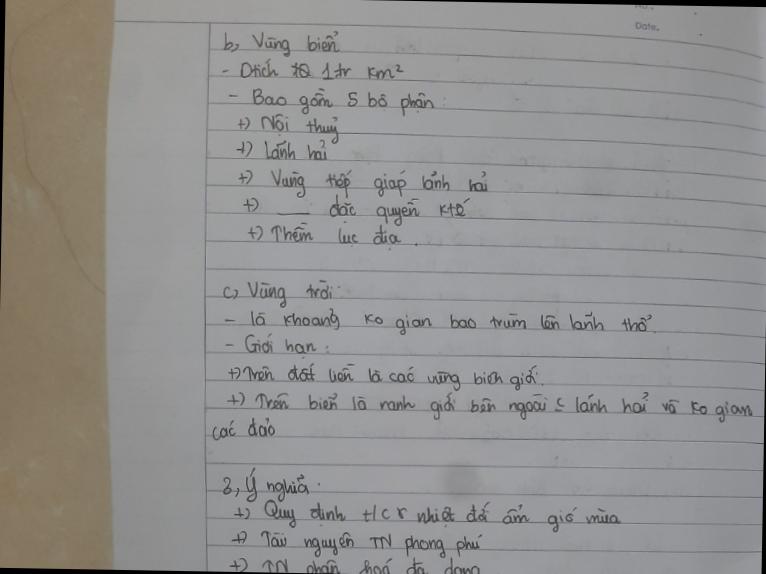 Date.
b, Vùng biển
- Dtích 1 tr km²
- Bao gồm 5 bộ phận :
+) Nội thuỷ
+) Lãnh hải
+) Vùng tiếp giáp lãnh hải
+) __ đặc quyền ktế
+) Thềm lục địa .
c, Vùng trời :
- là khoảng ko gian bao trùm lên lãnh thổ.
- Giới hạn :
+) Trên đất liền là các vùng biên giới.
+) Trên biển là ranh giới bên ngoài lãnh hải và ko gian
các đảo
3, Ý nghĩa .
+) Quy định nhiệt đới ẩm gió mùa
+) Tài nguyên TN phong phú
+) TN phân hoá đa dạng